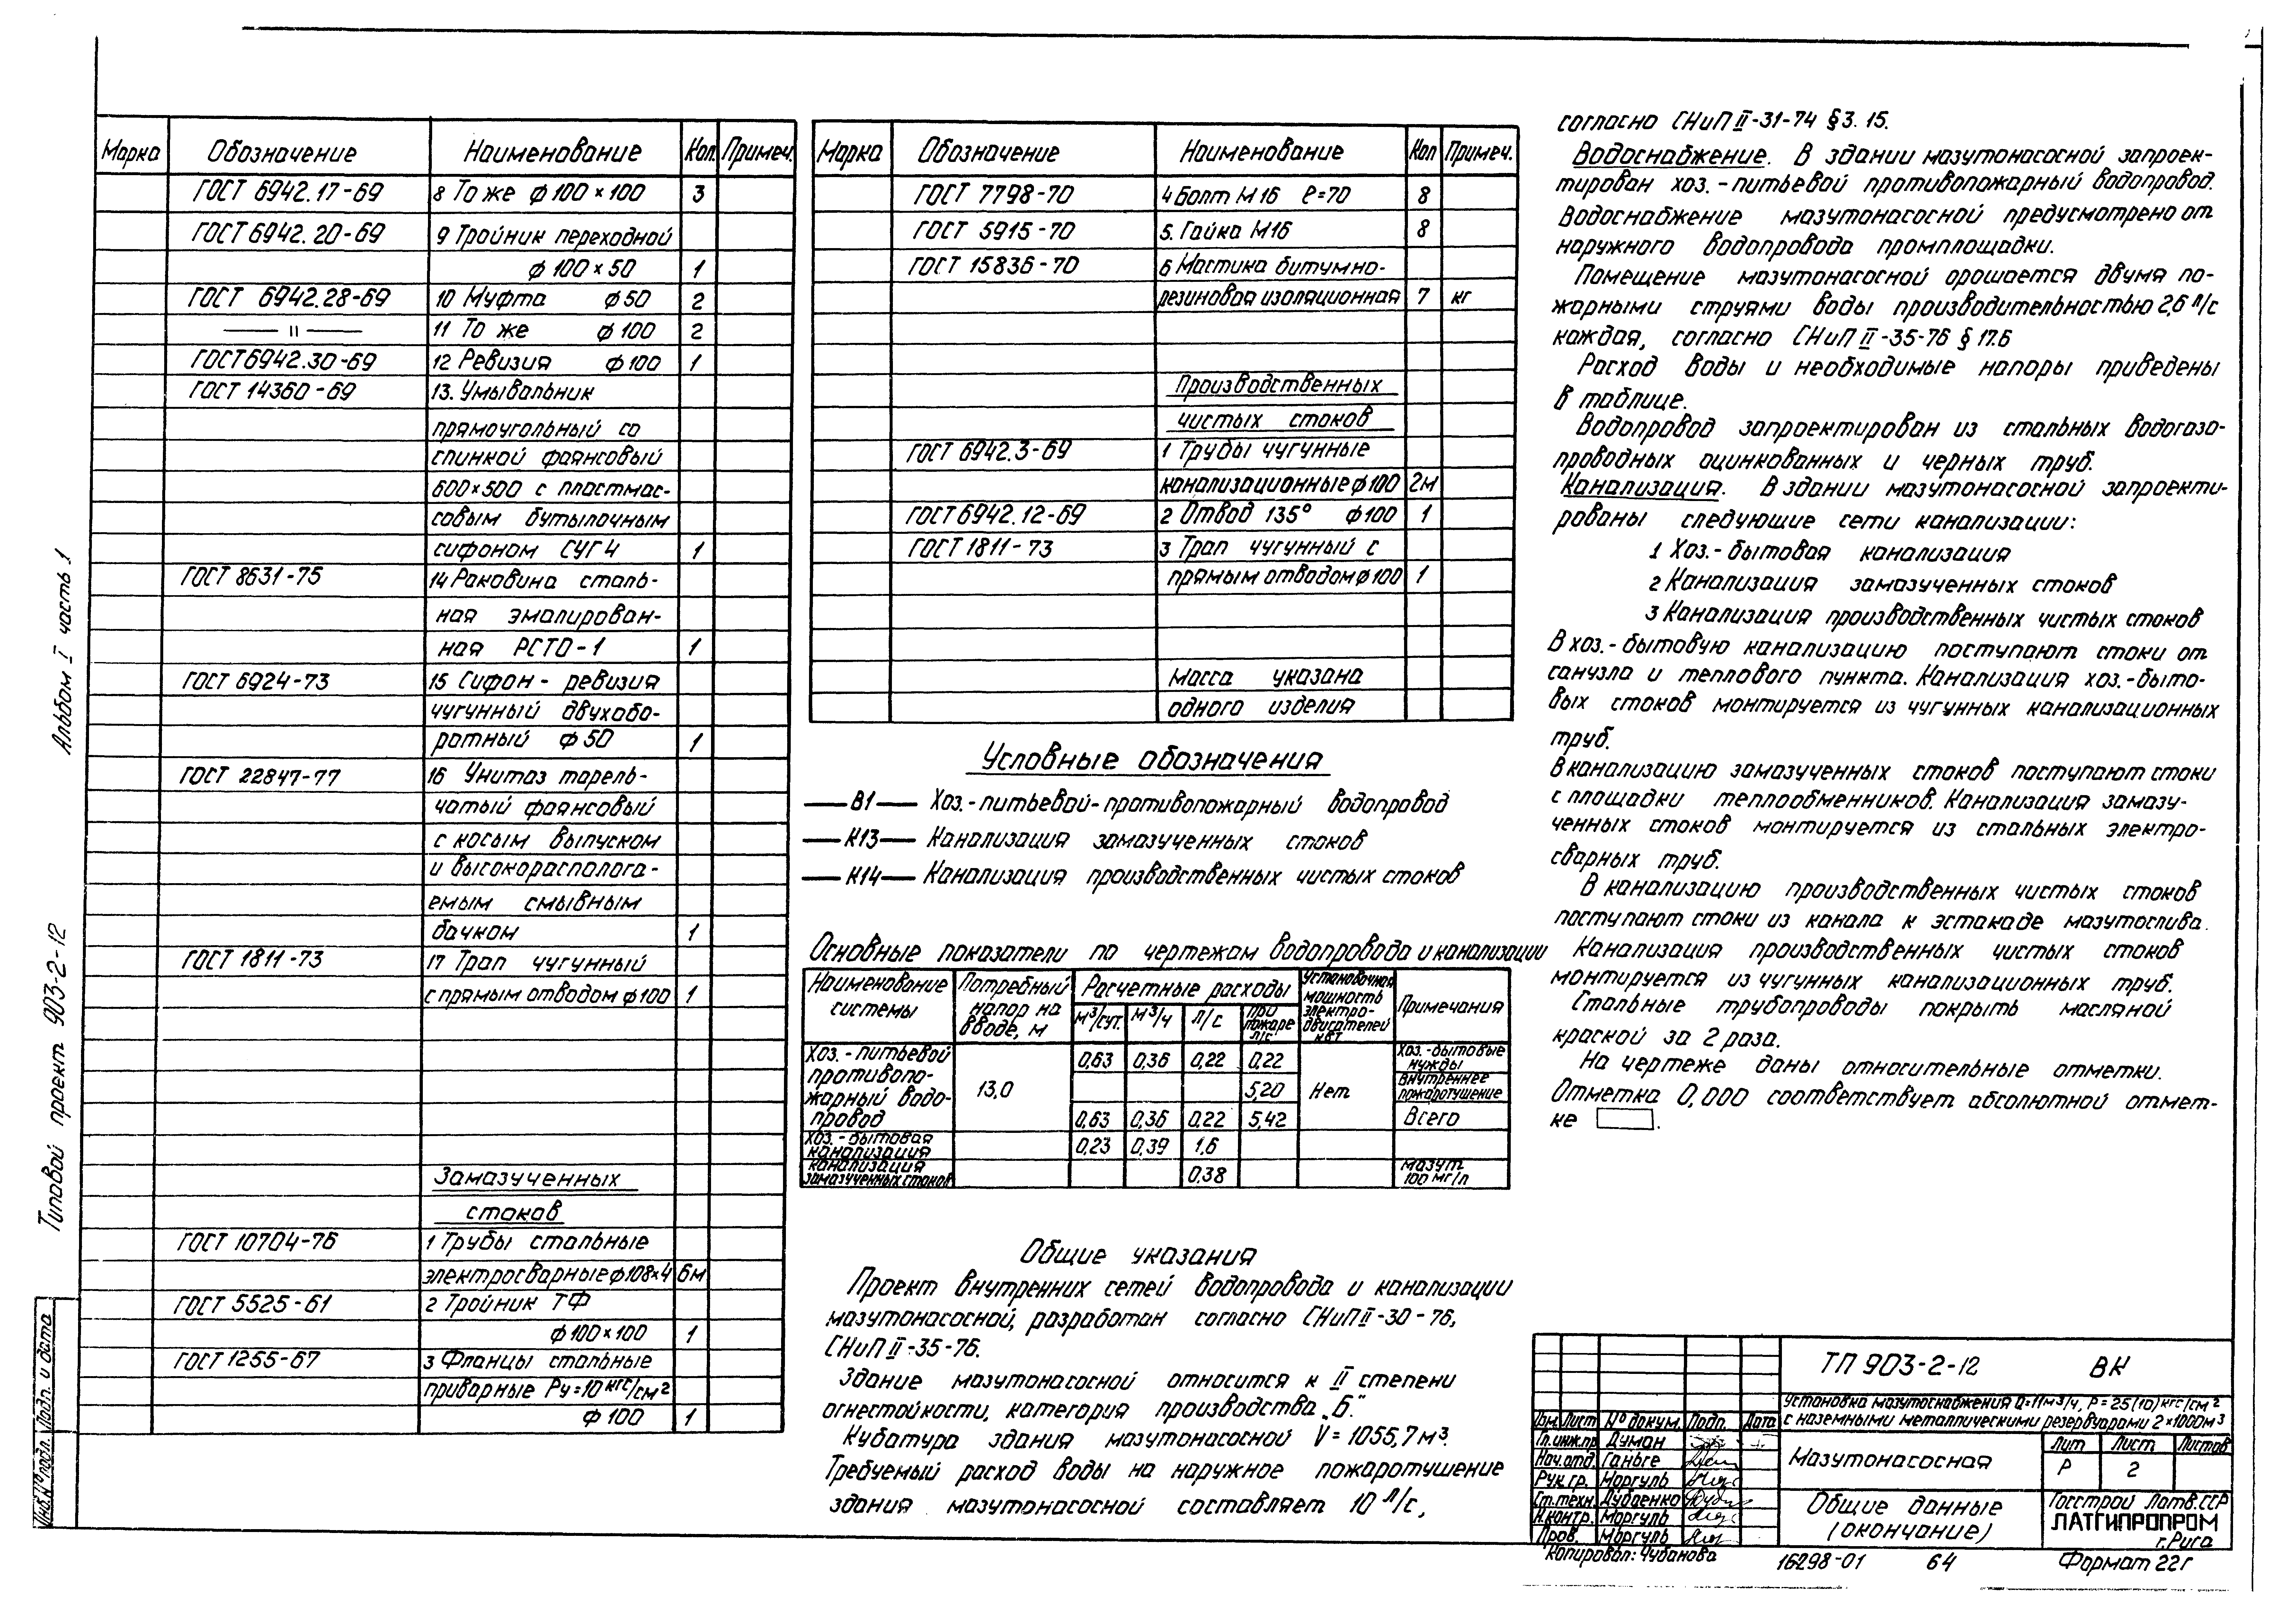 Марка Обозначение Наименование Кол. Примеч.
ГОСТ 6942.17-69 8 То же ф100×100 3
ГОСТ 6942.20-69 9 Тройник переходной
ф100×50 1
ГОСТ 6942.28-69 10 Муфта ф50 2
— " — 11 То же ф100 2
ГОСТ 6942.30-69 12 Ревизия ф100 1
ГОСТ 14360-69 13. Умывальник
прямоугольный со
спинкой фаянсовый
600×500 с пластмас-
совым бутылочным
сифоном СУГ4 1
ГОСТ 8631-75 14 Раковина сталь-
ная эмалирован-
ная РСТО-1 1
ГОСТ 6924-73 15 Сифон-ревизия
чугунный двухобо-
ротный ф50 1
ГОСТ 22847-77 16 Унитаз тарель-
чатый фаянсовый
с косым выпуском
и высокорасполога-
емым смывным
бачком 1
ГОСТ 1811-73 17 Трап чугунный
с прямым отводом ф100 1
Замазученных
стоков
ГОСТ 10704-76 1 Трубы стальные
электросварные ф108×4 6м
ГОСТ 5525-61 2 Тройник ТФ
ф100×100 1
ГОСТ 1255-67 3 Фланцы стальные
приварные Ру=10 кгс/см²
ф100 1
Марка Обозначение Наименование Кол Примеч.
ГОСТ 7798-70 4 Болт М16 ℓ=70 8
ГОСТ 5915-70 5. Гайка М16 8
ГОСТ 15836-70 6 Мастика битумно-
резиновая изоляционная 7 кг
Производственных
чистых стоков
ГОСТ 6942.3-69 1 Трубы чугунные
канализационные ф100 2м
ГОСТ 6942.12-69 2 Отвод 135° ф100 1
ГОСТ 1811-73 3 Трап чугунный с
прямым отводом ф100 1
Масса указана
одного изделия
Условные обозначения
—В1— Хоз.-питьевой-противопожарный водопровод
—К13— Канализация замазученных стоков
—К14— Канализация производственных чистых стоков
Основные показатели по чертежам водопровода и канализации
Наименование системы Потребный напор на вводе, м Расчетные расходы Установочная мощность электро-двигателей кВт Примечания
м³/сут. м³/ч л/с при пожаре л/с
Хоз.-питьевой противопо-жарный водо-провод 13,0 0,63 0,36 0,22 0,22 Нет Хоз.-бытовые нужды
5,20 Внутреннее пожаротушение
0,63 0,36 0,22 5,42 Всего
Хоз.-бытовая канализация 0,23 0,39 1,6
канализация замазученных стоков 0,38 мазут 100 мг/л
Общие указания
Проект внутренних сетей водопровода и канализации
мазутонасосной, разработан согласно СНиП II-30-76,
СНиП II-35-76.
Здание мазутонасосной относится к II степени
огнестойкости, категория производства „Б".
Кубатура здания мазутонасосной V=1055,7м³.
Требуемый расход воды на наружное пожаротушение
здания мазутонасосной составляет 10 л/с,
согласно СНиП II-31-74 §3.15.
Водоснабжение. В здании мазутонасосной запроек-
тирован хоз.-питьевой противопожарный водопровод.
Водоснабжение мазутонасосной предусмотрено от
наружного водопровода промплощадки.
Помещение мазутонасосной орошается двумя по-
жарными струями воды производительностью 2,6 л/с
каждая, согласно СНиП II-35-76 §17.6
Расход воды и необходимые напоры приведены
в таблице.
Водопровод запроектирован из стальных водогазо-
проводных оцинкованных и черных труб.
Канализация. В здании мазутонасосной запроекти-
рованы следующие сети канализации:
1 Хоз.-бытовая канализация
2 Канализация замазученных стоков
3 Канализация производственных чистых стоков
В хоз.-бытовую канализацию поступают стоки от
санузла и теплового пункта. Канализация хоз.-быто-
вых стоков монтируется из чугунных канализационных
труб.
В канализацию замазученных стоков поступают стоки
с площадки теплообменников. Канализация замазу-
ченных стоков монтируется из стальных электро-
сварных труб.
В канализацию производственных чистых стоков
поступают стоки из канала к эстакаде мазутослива.
Канализация производственных чистых стоков
монтируется из чугунных канализационных труб.
Стальные трубопроводы покрыть масляной
краской за 2 раза.
На чертеже даны относительные отметки.
Отметка 0,000 соответствует абсолютной отмет-
ке .
ТП 903-2-12 ВК
Установка мазутоснабжения Q=11м³/ч, Р=25(10)кгс/см²
с наземными металлическими резервуарами 2×1000м³
Изм. Лист № докум. Подп. Дата
Гл.инж.пр Думан
Нач.отд. Ганьге
Рук.гр. Моргуль
Ст.техн. Дубаенко
Н.контр. Моргуль
Пров. Моргуль
Мазутонасосная
Лит Лист Листов
Р 2
Общие данные
(окончание)
Госстрой Латв.ССР
ЛАТГИПРОПРОМ
г.Рига
Копировал: Чубанова 16298-01 64 Формат 22г
Альбом I часть 1
Типовой проект 903-2-12
Инв.№ подл. Подп. и дата